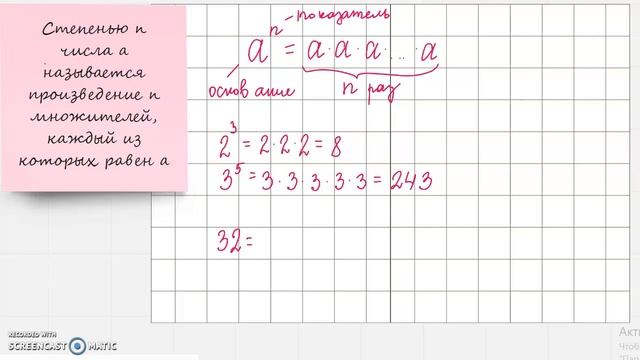 Степенью n
числа а
называется
произведение n
множителей,
каждый из
которых равен а
n - показатель
aⁿ = a · a · a · ... · a
основание
n раз
2³ = 2 · 2 · 2 = 8
3⁵ = 3 · 3 · 3 · 3 · 3 = 243
32 =
RECORDED WITH
SCREENCAST MATIC
Акти
Чтоб